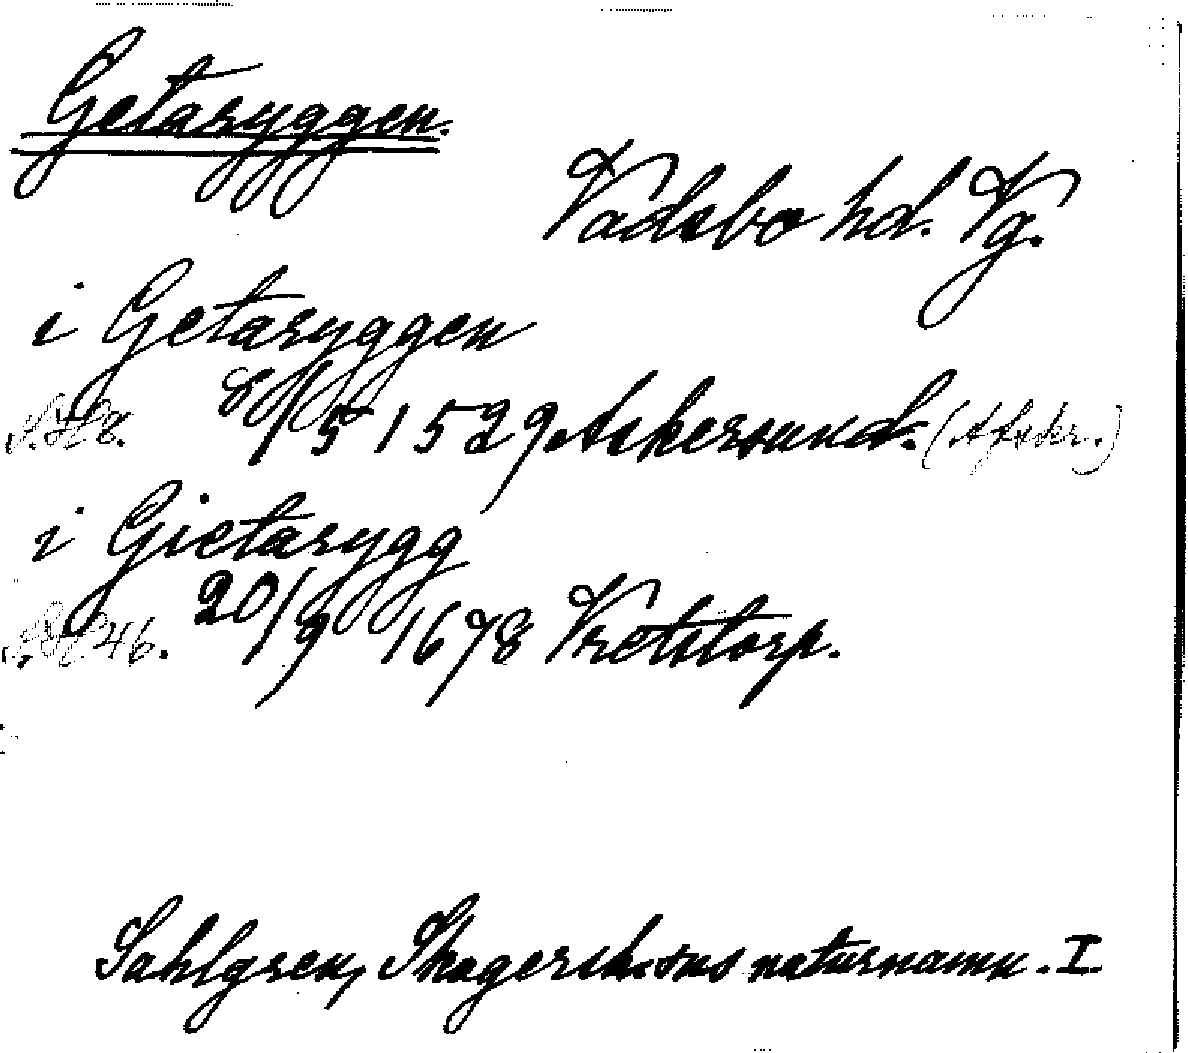 Getaryggen.
Vadsbo hd. Vg.
i Getaryggen
8/5 1529 Askersund. (Afskr.)
i Gietarygg
20/9 1678 Kretstorp.
Sahlgren, Skagershults naturnamn. I.